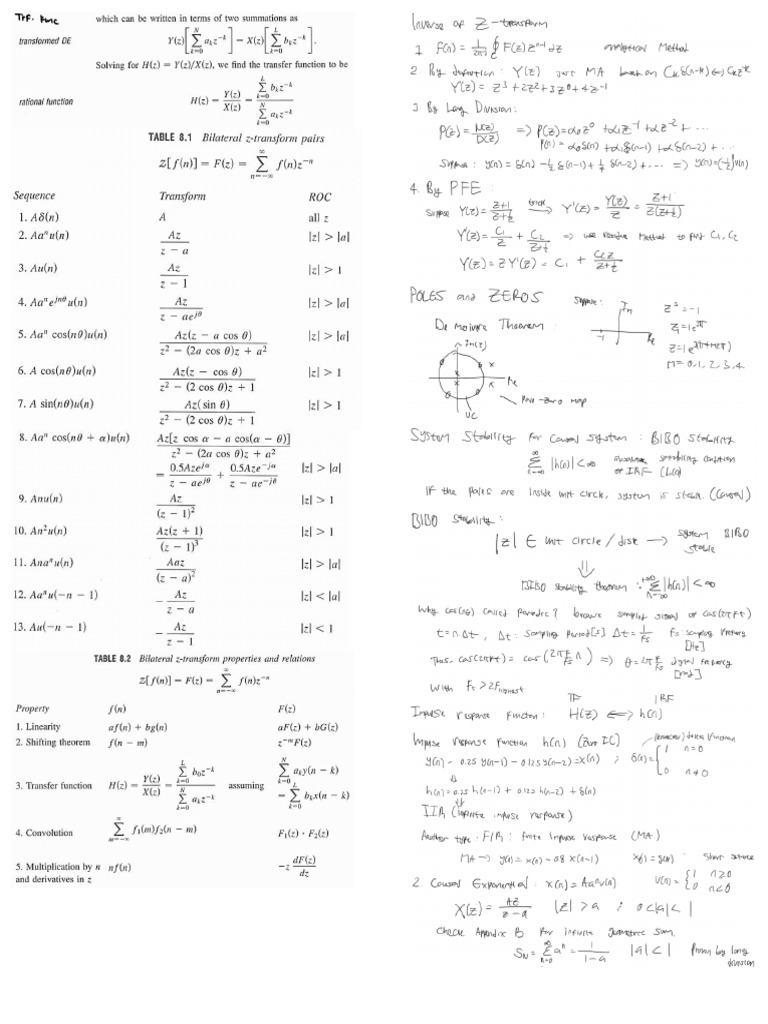 Trf. Func
which can be written in terms of two summations as
transformed DE
Y(z)[∑_{k=0}^{N} a_k z^{-k}] = X(z)[∑_{k=0}^{L} b_k z^{-k}].
Solving for H(z) = Y(z)/X(z), we find the transfer function to be
rational function
H(z) = Y(z)/X(z) = ∑_{k=0}^{L} b_k z^{-k} / ∑_{k=0}^{N} a_k z^{-k}
TABLE 8.1 Bilateral z-transform pairs
Z[f(n)] = F(z) = ∑_{n=-∞}^{∞} f(n)z^{-n}
Sequence Transform ROC
1. Aδ(n) A all z
2. Aa^n u(n) Az/(z − a) |z| > |a|
3. Au(n) Az/(z − 1) |z| > 1
4. Aa^n e^{jnθ} u(n) Az/(z − ae^{jθ}) |z| > |a|
5. Aa^n cos(nθ)u(n) Az(z − a cos θ)/(z² − (2a cos θ)z + a²) |z| > |a|
6. A cos(nθ)u(n) Az(z − cos θ)/(z² − (2 cos θ)z + 1) |z| > 1
7. A sin(nθ)u(n) Az(sin θ)/(z² − (2 cos θ)z + 1) |z| > 1
8. Aa^n cos(nθ + α)u(n) Az[z cos α − a cos(α − θ)]/(z² − (2a cos θ)z + a²)
= 0.5Aze^{jα}/(z − ae^{jθ}) + 0.5Aze^{-jα}/(z − ae^{-jθ}) |z| > |a|
9. Anu(n) Az/(z − 1)² |z| > 1
10. An²u(n) Az(z + 1)/(z − 1)³ |z| > 1
11. Ana^n u(n) Aaz/(z − a)² |z| > |a|
12. Aa^n u(−n − 1) − Az/(z − a) |z| < |a|
13. Au(−n − 1) − Az/(z − 1) |z| < 1
TABLE 8.2 Bilateral z-transform properties and relations
Z[f(n)] − F(z) = ∑_{n=-∞}^{∞} f(n)z^{-n}
Property f(n) F(z)
1. Linearity af(n) + bg(n) aF(z) + bG(z)
2. Shifting theorem f(n − m) z^{-m}F(z)
3. Transfer function H(z) = Y(z)/X(z) = ∑_{k=0}^{L} b_k z^{-k} / ∑_{k=0}^{N} a_k z^{-k} assuming ∑_{k=0}^{N} a_k y(n − k) = ∑_{k=0}^{L} b_k x(n − k)
4. Convolution ∑_{m=-∞}^{∞} f₁(m)f₂(n − m) F₁(z) · F₂(z)
5. Multiplication by n nf(n) −z dF(z)/dz
and derivatives in z
Inverse of Z-transform
1. f(n) = 1/2πj ∮ F(z) z^{n-1} dz analytical Method
2 By definition: Y(z) just MA based on C_k δ(n-k) ⇔ C_k z^{-k}
Y(z) = z³ + 2z² + 3z⁰ + 4z^{-1}
3 By Long Division:
P(z) = N(z)/D(z) ⇒ P(z) = α₀z⁰ + α₁z^{-1} + αz^{-2} + ...
P(n) = α₀δ(n) + α₁δ(n-1) + α₂δ(n-2) + ...
Suppose: y(n) = δ(n) − ½ δ(n-1) + ¼ δ(n-2) + ... ⇒ y(n) = (-½)^n u(n)
4. By PFE:
Suppose Y(z) = (z+1)/(z+½) trick → Y'(z) = Y(z)/z = (z+1)/(z(z+½))
Y'(z) = C₁/z + C₂/(z+½) ⇒ use Residue Method to find C₁, C₂
Y(z) = z Y'(z) = C₁ + C₂z/(z+½)
POLES and ZEROS
Suppose:
Im
Re
-1
z⁵ = -1
z = 1e^{jπ}
z = 1e^{j(π+m2π)}
m = 0, 1, 2, 3, 4
De Moivre Theorem:
Im(z)
Re
UC
Pole-zero map
System Stability for Causal System: BIBO Stability
∑_{n=-∞}^{∞} |h(n)| < ∞ stability condition
of IRF (h(n))
IF the Poles are inside unit circle, system is stable. (Causal)
BIBO Stability:
|z| ∈ unit circle / disk → system BIBO stable
⇓
BIBO stability theorem ∵ ∑_{n=-∞}^{+∞} |h(n)| < ∞
Why cos(nθ) called Periodic? because sampled signal of cos(2πFt)
t = n·Δt, Δt: Sampling Period [s] Δt = 1/Fs Fs: sampling frequency [Hz]
Thus. cos(2πFt) = cos(2π F/Fs n) ⇒ θ = 2π F/Fs digital frequency [rad]
With Fs > 2F_highest
TF IRF
Impulse response Function: H(z) ⟷ h(n)
Impulse Response Function h(n) (Zero IC)
(Kronecker) delta Function
y(n) − 0.25 y(n−1) − 0.125 y(n−2) = x(n) ; δ(n) = { 1 n=0
0 n≠0
⇓
h(n) = 0.25 h(n−1) + 0.125 h(n−2) + δ(n)
⇓
IIR (infinite impulse response)
Another type. FIR: finite Impulse response (MA)
MA → y(n) = x(n) − 0.8 x(n−1)
u(n) = { 1 n≥0
0 n<0
2. Causal Exponential: x(n) = Aa^n u(n)
X(z) = Az/(z−a) |z| > a ; 0<|a|<1
Check Appendix B for infinite geometric sum.
S_N = ∑_{n=0}^{∞} a^n = 1/(1−a) |a| < 1 Proven by long division